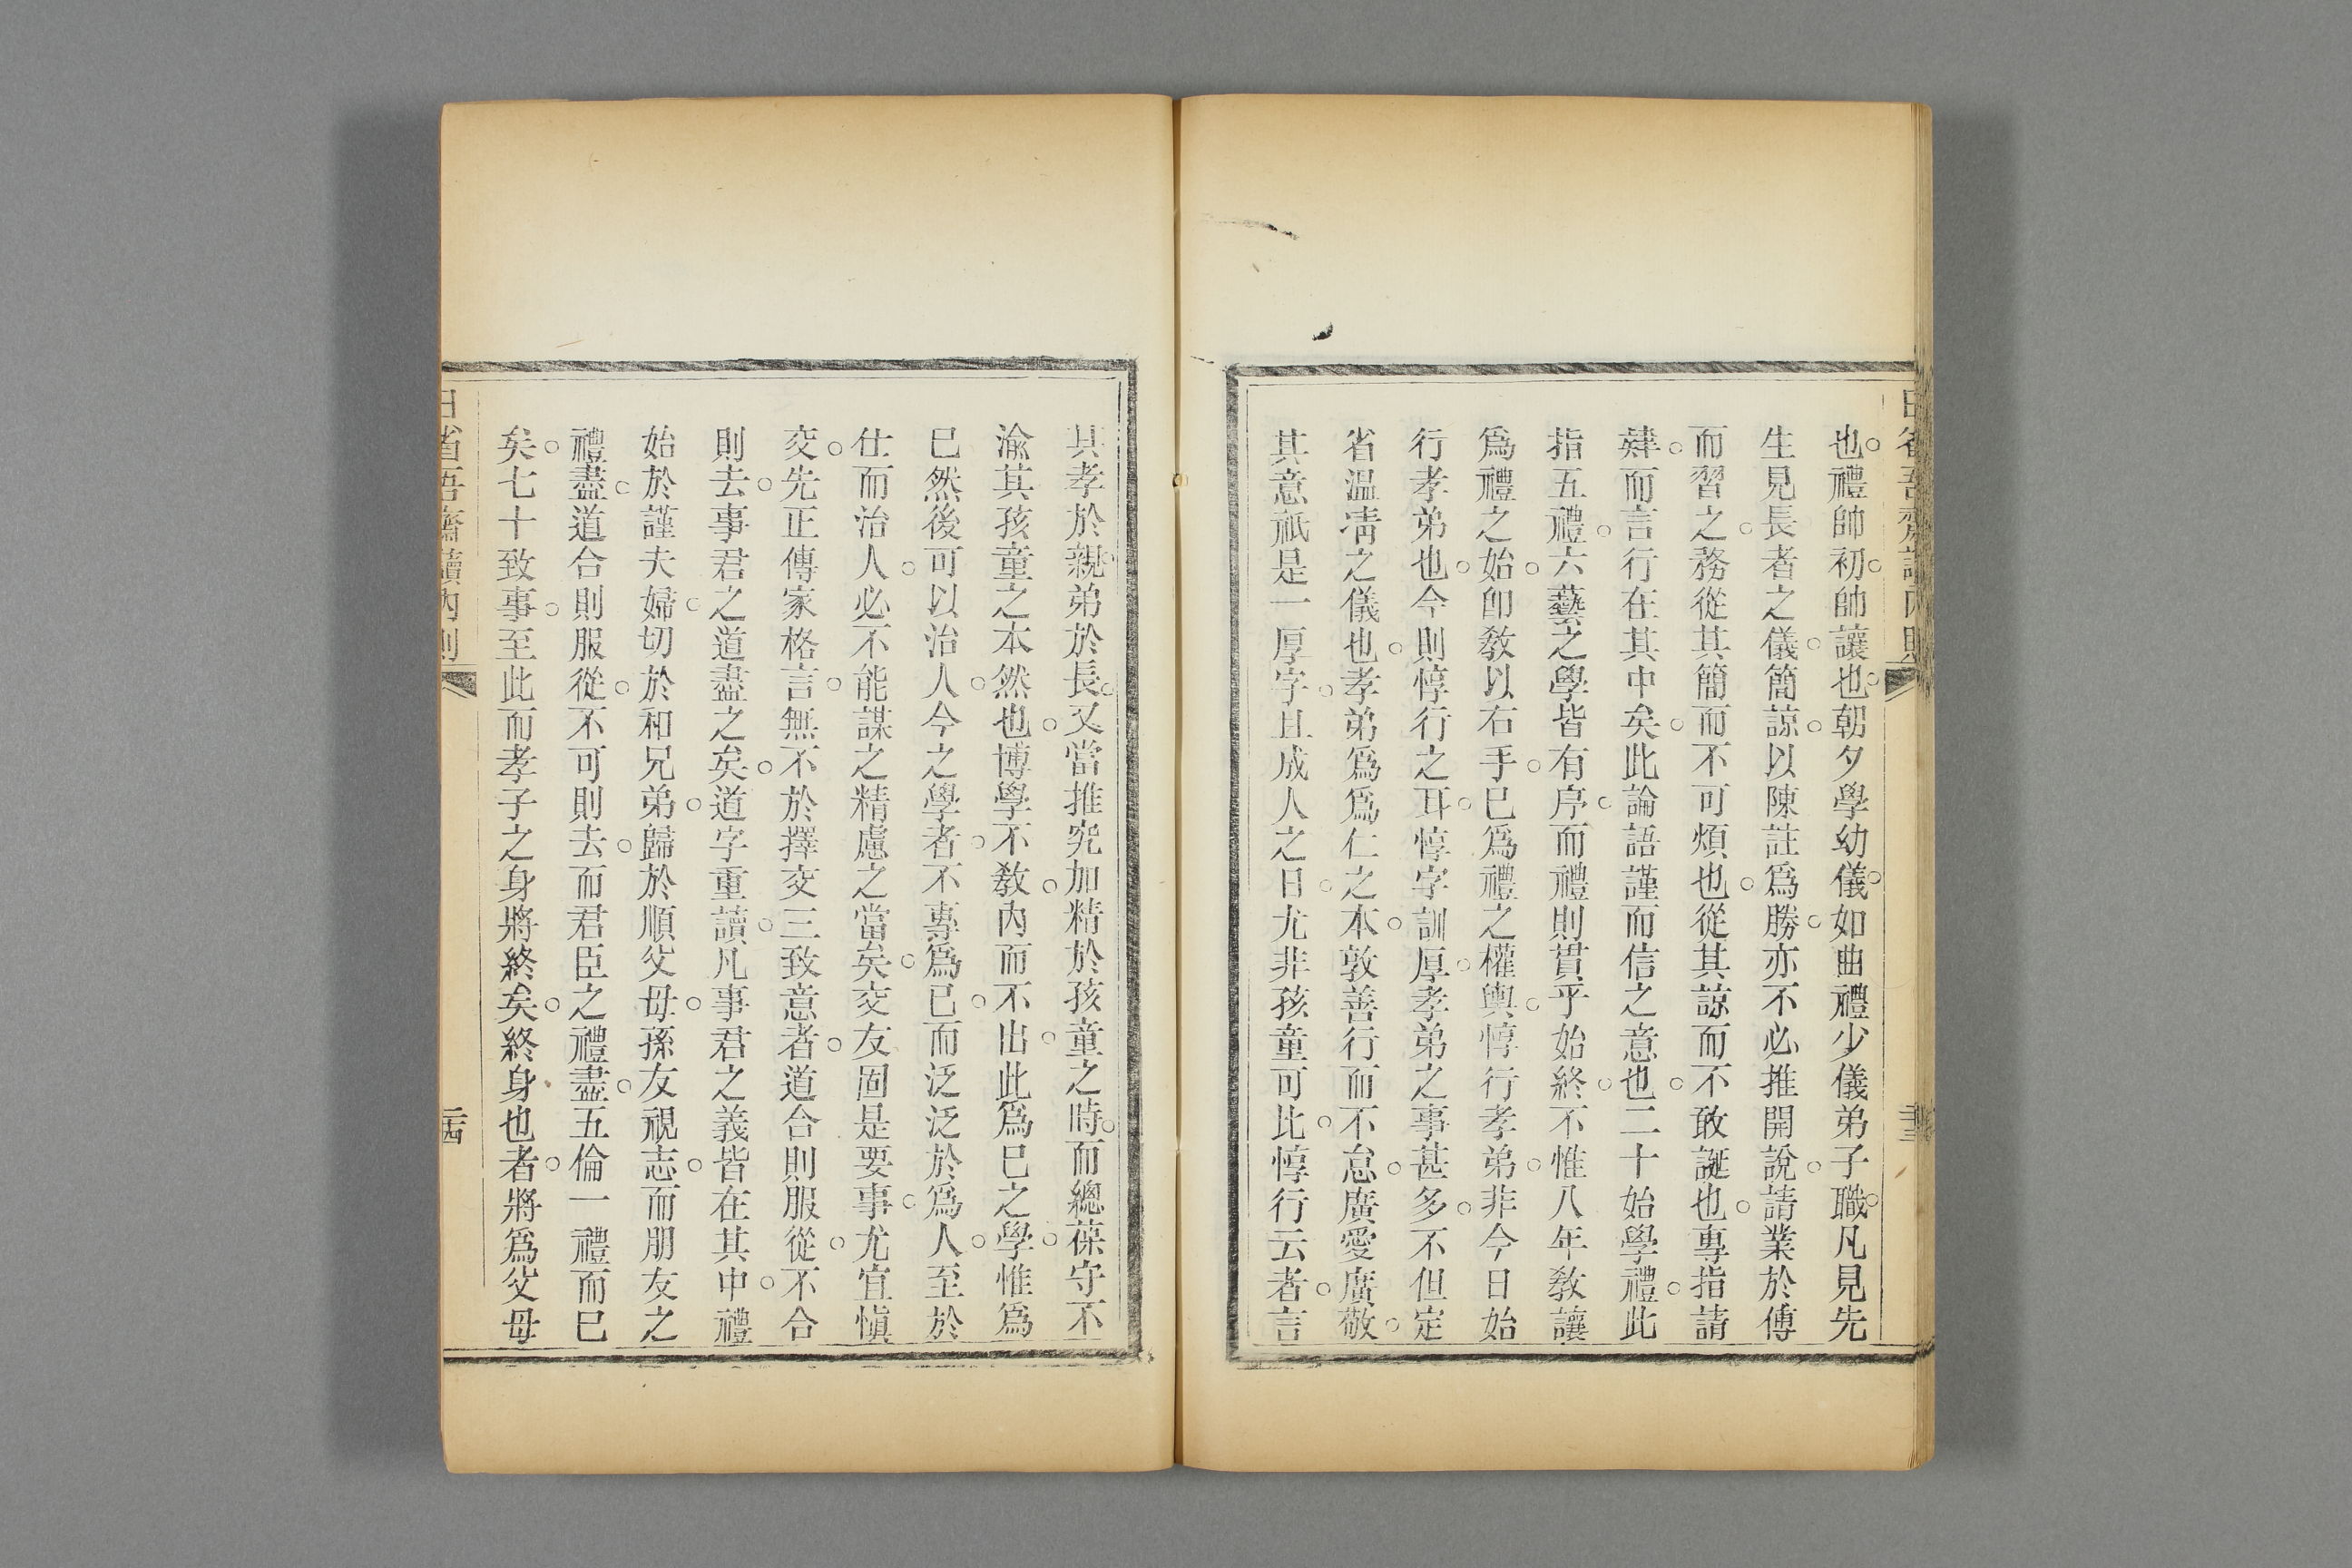 也禮帥初帥讓也朝夕學幼儀如曲禮少儀弟子職凡見先
生見長者之儀簡諒以陳註爲勝亦不必推開說請業於傅
而習之務從其簡而不可煩也從其諒而不敢誕也專指請
肄而言行在其中矣此論語謹而信之意也二十始學禮此
指五禮六藝之學皆有序而禮則貫乎始終不惟八年敎讓
爲禮之始卽敎以右手已爲禮之權輿惇行孝弟非今日始
行孝弟也今則惇行之耳惇字訓厚孝弟之事甚多不但定
省溫凊之儀也孝弟爲爲仁之本敦善行而不怠廣愛廣敬
其意祇是一厚字且成人之日尤非孩童可比惇行云者言
其孝於親弟於長又當推究加精於孩童之時而總葆守不
渝其孩童之本然也博學不敎內而不出此爲已之學惟爲
已然後可以治人今之學者不專爲已而泛泛於爲人至於
仕而治人必不能謀之精慮之當矣交友固是要事尤宜愼
交先正傳家格言無不於擇交三致意者道合則服從不合
則去事君之道盡之矣道字重讀凡事君之義皆在其中禮
始於謹夫婦切於和兄弟歸於順父母孫友視志而朋友之
禮盡道合則服從不可則去而君臣之禮盡五倫一禮而已
矣七十致事至此而孝子之身將終矣終身也者將爲父母
日省吾齋讀內則
二四